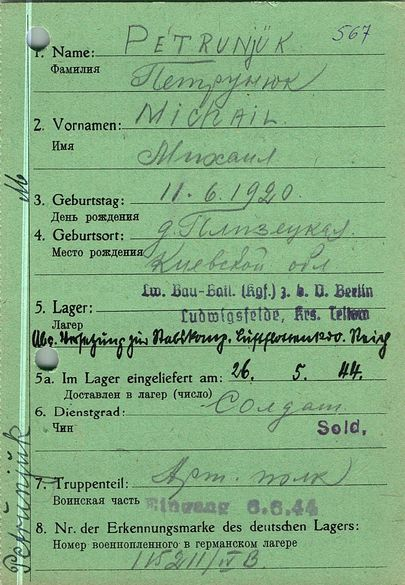 567
1. Name: PETRUNJÜK
Фамилия Петрунюк
2. Vornamen: MICHAIL.
Имя Михаил
3. Geburtstag: 11.6.1920.
День рождения
4. Geburtsort: д. Плизецкая
Место рождения Киевской обл
Lw. Bau-Batl. (Kgf.) z. b. V. Berlin
5. Lager: Ludwigsfelde, Krs. Teltow
Лагерь
Abg. Versetzung zur Stabskomp. Luftflottenkdo. Reich
5a. Im Lager eingeliefert am: 26. 5. 44.
Доставлен в лагер (число)
6. Dienstgrad: Солдат
Чин Sold.
7. Truppenteil: Арт. полк
Воинская часть Eingang 6.6.44
8. Nr. der Erkennungsmarke des deutschen Lagers:
Номер военнопленного в германском лагере
IV B
Petrunjük